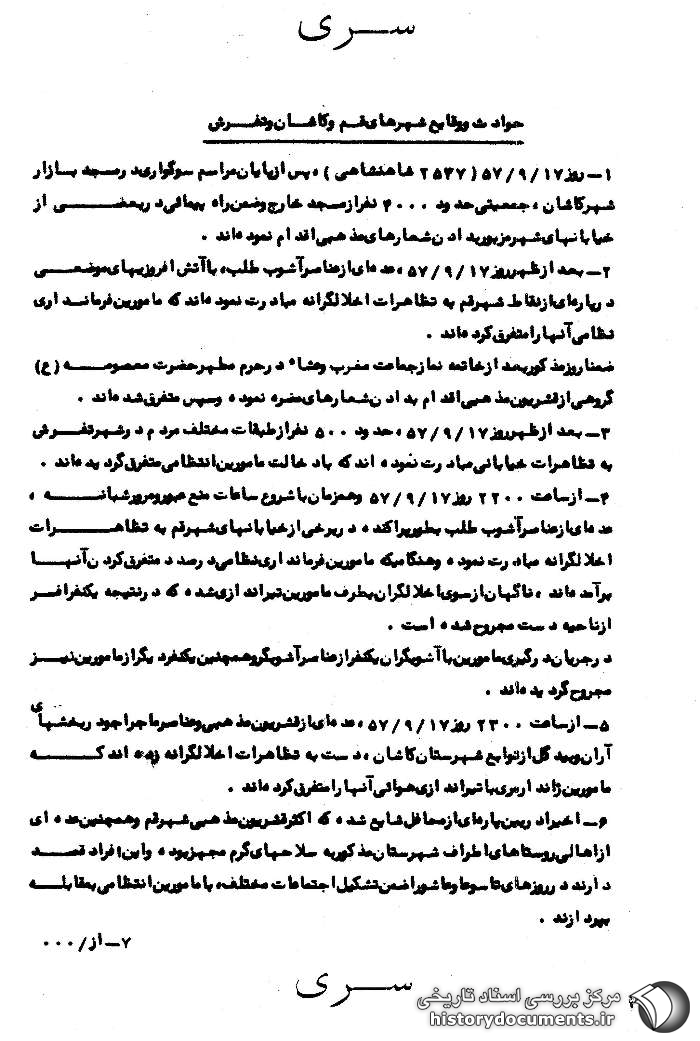 سری
حوادث و وقایع شهرهای قم و کاشان و تفرش
۱ـ روز ۵۷/۹/۱۷ (۲۵۳۷ شاهنشاهی) ، پس از پایان مراسم سوگواری در مسجد بازار
شهر کاشان ، جمعیتی حدود ۴۰۰۰ نفر از مسجد خارج و ضمن راه پیمائی در بعضی از
خیابانهای شهر مزبور به دادن شعارهای مذهبی اقدام نموده‌اند .
۲ـ بعد از ظهر روز ۵۷/۹/۱۷ ، عده‌ای از عناصر آشوب طلب ، با آتش افروزیهای موضعی
در پاره‌ای از نقاط شهر قم به تظاهرات اخلالگرانه مبادرت نموده‌اند که مامورین فرمانداری
نظامی آنها را متفرق کرده‌اند .
ضمنا روز مذکور بعد از خاتمه نماز جماعت مغرب و عشاء در حرم مطهر حضرت معصومه (ع)
گروهی از قشریون مذهبی اقدام به دادن شعارهای مضره نموده و سپس متفرق شده‌اند .
۳ـ بعد از ظهر روز ۵۷/۹/۱۷ ، حدود ۵۰۰ نفر از طبقات مختلف مردم در شهر تفرش
به تظاهرات خیابانی مبادرت نموده اند که با دخالت مامورین انتظامی متفرق گردیده‌اند .
۴ـ از ساعت ۲۲۰۰ روز ۵۷/۹/۱۷ و همزمان با شروع ساعات منع عبور و مرور شبانه ،
عده‌ای از عناصر آشوب طلب بطور پراکنده در برخی از خیابانهای شهر قم به تظاهرات
اخلالگرانه مبادرت نموده و هنگامیکه مامورین فرمانداری نظامی در صدد متفرق کردن آنها
برآمده‌اند ، ناگهان از سوی اخلالگران بطرف مامورین تیراندازی شده که در نتیجه یکنفر افسر
از ناحیه دست مجروح شده است .
در جریان درگیری مامورین با آشوبگران یکنفر از عناصر آشوبگر و همچنین یکنفر دیگر از مامورین نیز
مجروح گردیده‌اند .
۵ـ از ساعت ۲۳۰۰ روز ۵۷/۹/۱۷ ، عده‌ای از قشریون مذهبی و عناصر ماجراجو در بخشهای
آران و بیدگل از توابع شهرستان کاشان ، دست به تظاهرات اخلالگرانه زده اند که
مامورین ژاندارمری با تیراندازی هوائی آنها را متفرق کرده‌اند .
۶ـ اخیرا در بین پاره‌ای از محافل شایع شده که اکثر قشریون مذهبی شهر قم و همچنین عده ای
از اهالی روستاهای اطراف شهرستان مذکور به سلاحهای گرم مجهز بوده و این افراد قصد
دارند در روزهای تاسوعا و عاشورا ضمن تشکیل اجتماعات مختلف ، با مامورین انتظامی بمقابله
بپردازند .
۷ـ از / ۰۰۰
سری
مرکز بررسی اسناد تاریخی
historydocuments.ir